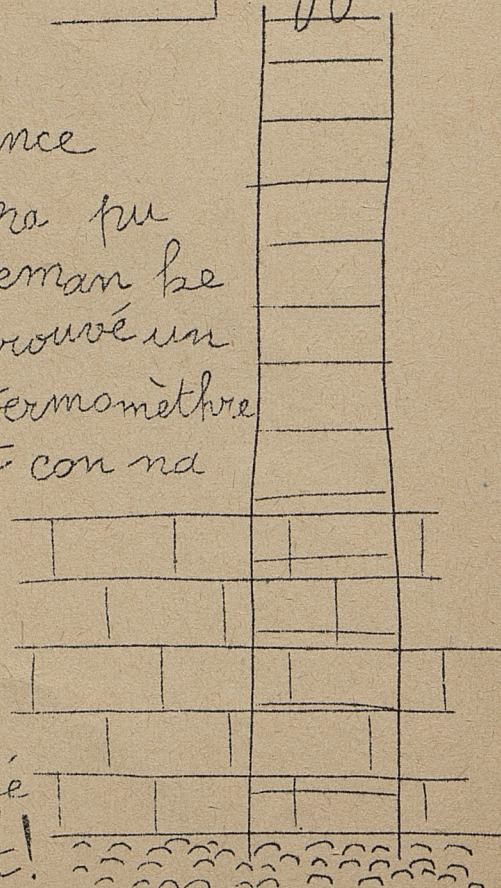 nce
na pu
eman be
rouvé un
ermomèthre
con na
é
!